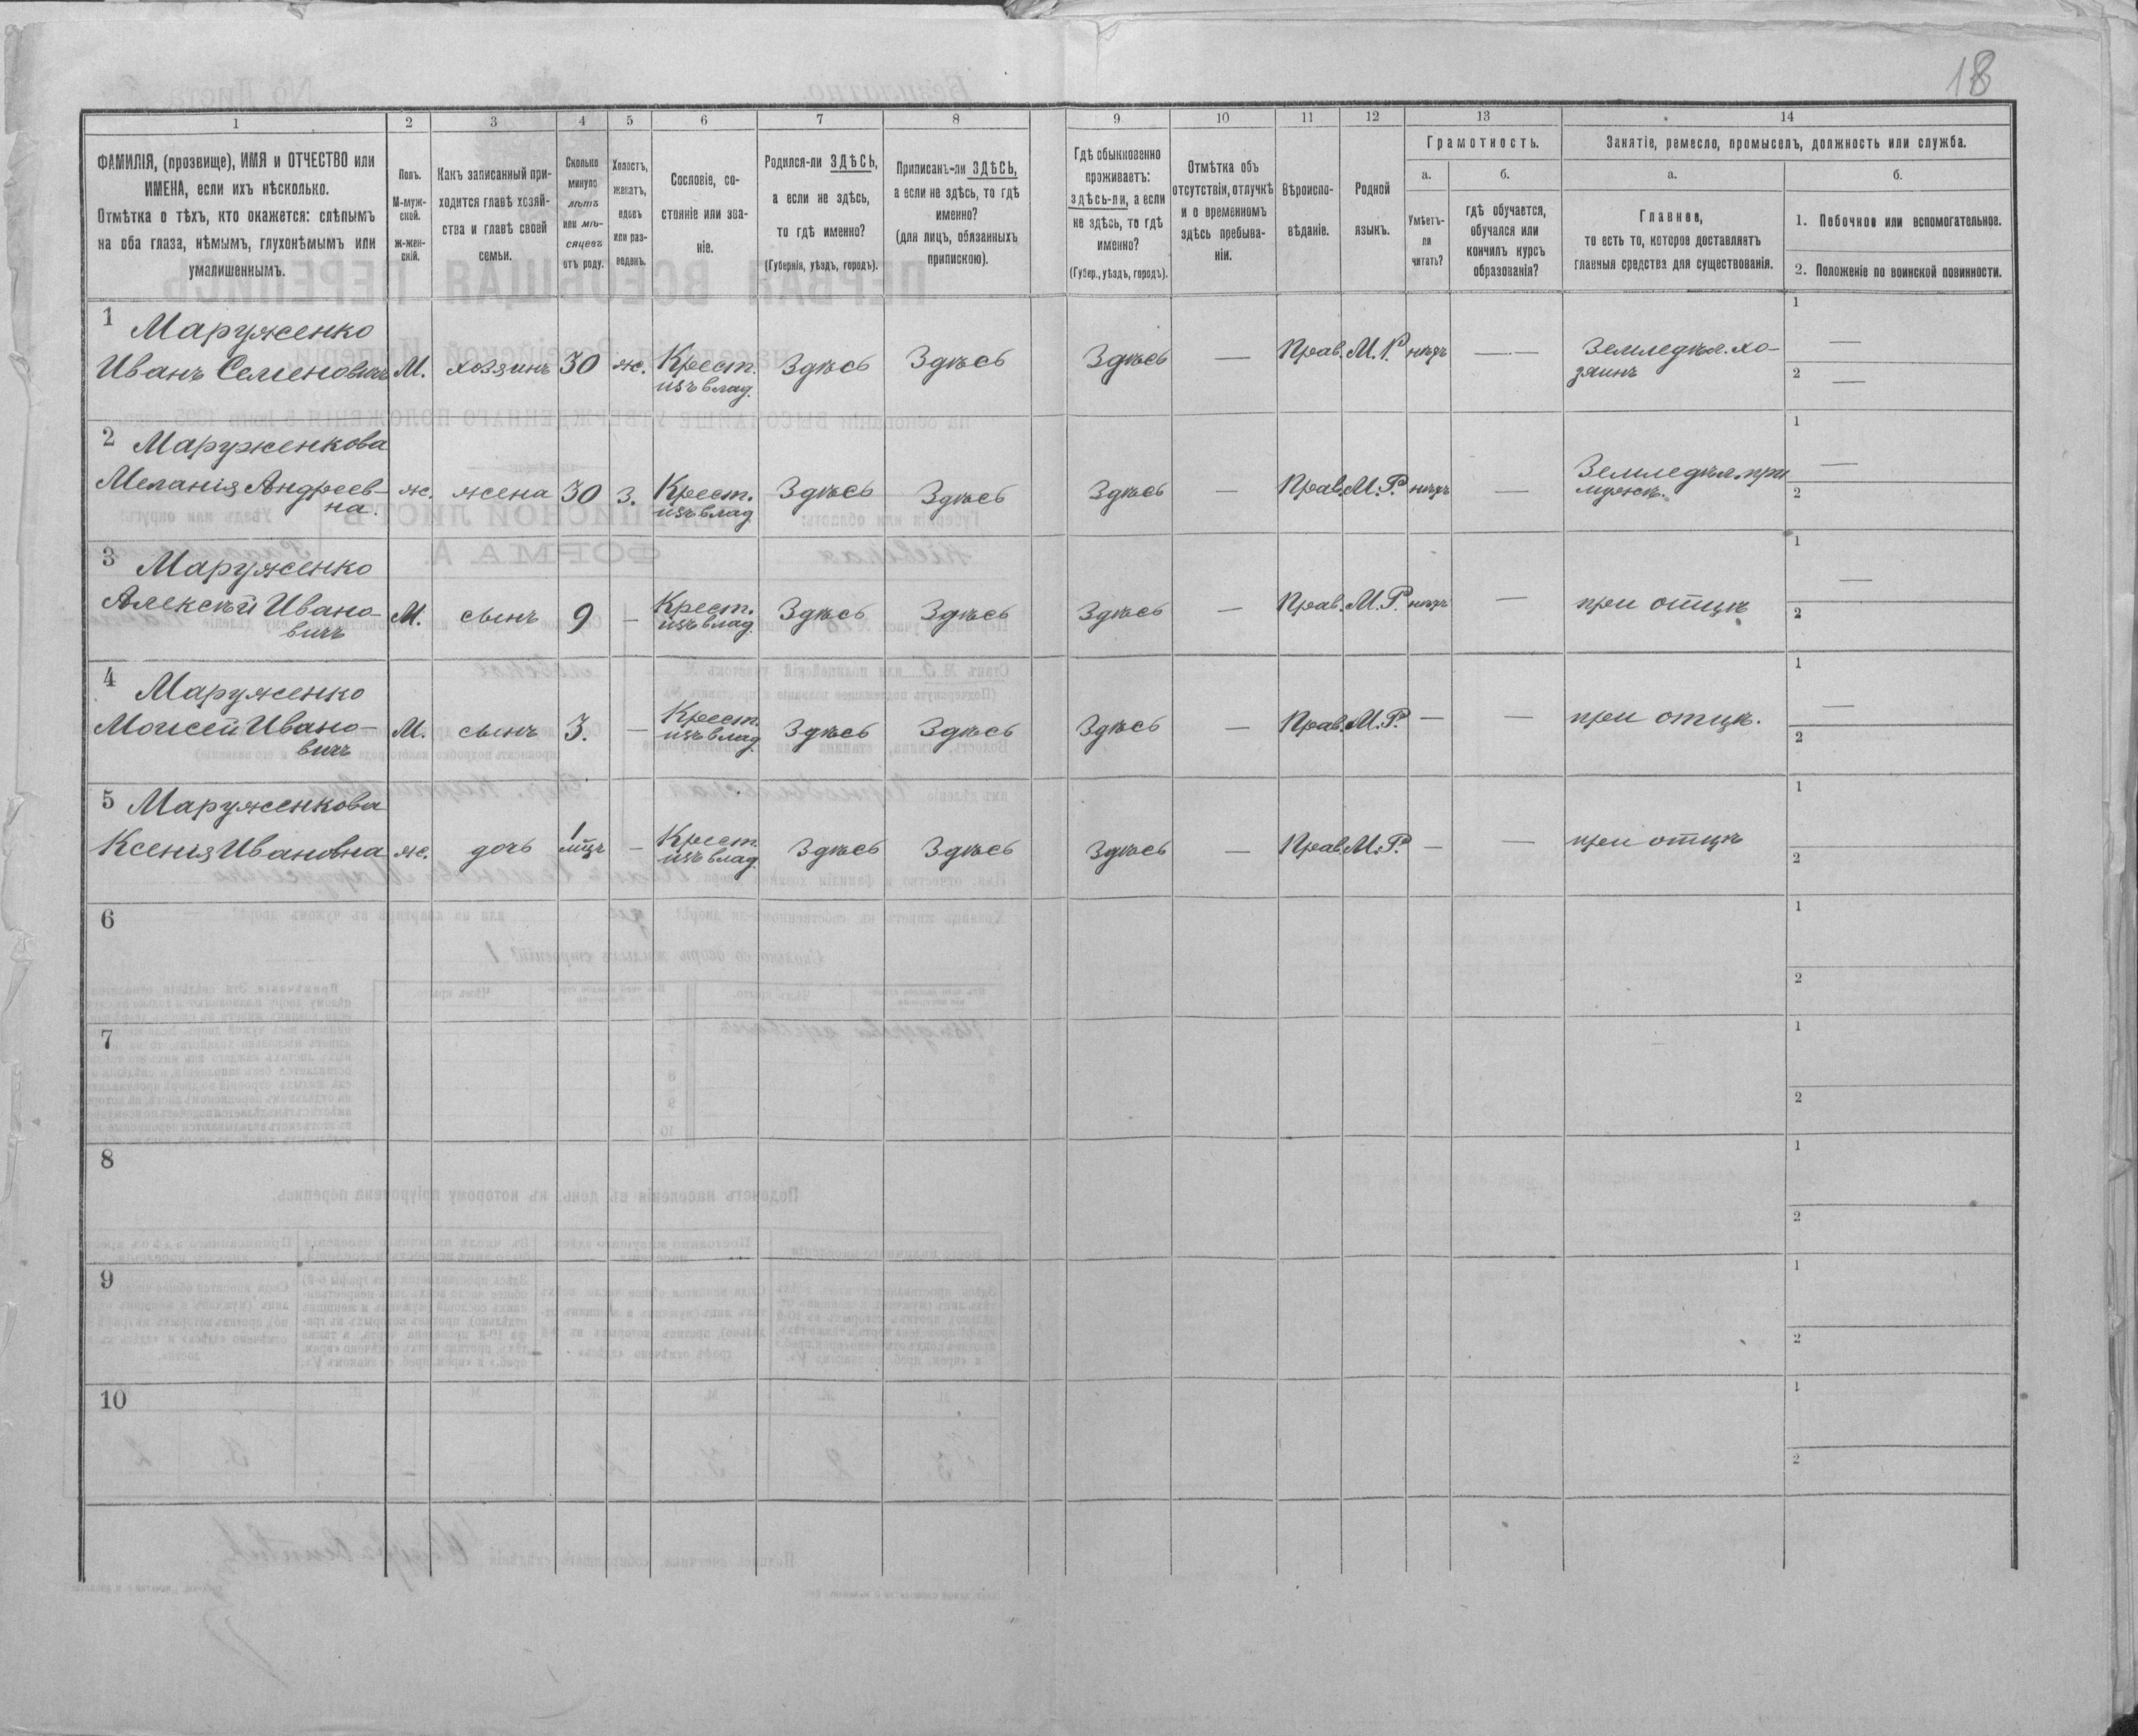 18
1 2 3 4 5 6 7 8 9 10 11 12 13 14
ФАМИЛІЯ, (прозвище), ИМЯ и ОТЧЕСТВО или
ИМЕНА, если ихъ нѣсколько.
Отмѣтка о тѣхъ, кто окажется: слѣпымъ
на оба глаза, нѣмымъ, глухонѣмымъ или
умалишеннымъ.
Полъ.
М-муж-
ской.
ж-жен-
скій.
Какъ записанный при-
ходится главѣ хозяй-
ства и главѣ своей
семьи.
Сколько
минуло
лѣтъ
или мѣ-
сяцевъ
отъ роду.
Холостъ,
женатъ,
вдовъ
или раз-
веденъ.
Сословіе, со-
стояніе или зва-
ніе.
Родился-ли ЗДѢСЬ,
а если не здѣсь,
то гдѣ именно?
(Губернія, уѣздъ, городъ).
Приписанъ-ли ЗДѢСЬ,
а если не здѣсь, то гдѣ
именно?
(для лицъ, обязанныхъ
припискою).
Гдѣ обыкновенно
проживаетъ:
здѣсь-ли, а если
не здѣсь, то гдѣ
именно?
(Губер., уѣздъ, городъ).
Отмѣтка объ
отсутствіи, отлучкѣ
и о временномъ
здѣсь пребыва-
ніи.
Вѣроиспо-
вѣданіе.
Родной
языкъ.
Грамотность.
а.
Умѣетъ-
ли
читать?
б.
гдѣ обучается,
обучался или
кончилъ курсъ
образованія?
Занятіе, ремесло, промыселъ, должность или служба.
а.
Главное,
то есть то, которое доставляетъ
главныя средства для существованія.
б.
1. Побочное или вспомогательное.
2. Положеніе по воинской повинности.
1 Маруженко
Иванъ Семеновичъ М. хозяинъ 30 ж. Крест. Здѣсь Здѣсь Здѣсь — Прав. М.Р. нѣтъ — — Земледѣл. хо- 1 —
изъ влад. зяинъ 2 —
2 Маруженкова
Меланія Андреев- ж. жена 30 З. Крест. Здѣсь Здѣсь Здѣсь — Прав. М.Р. нѣтъ — Земледѣл. при 1 —
на. изъ влад мужѣ. 2
3 Маруженко
Алексѣй Ивано- М. сынъ 9 — Крест. Здѣсь Здѣсь Здѣсь — Прав. М.Р. нѣтъ — при отцѣ 1 —
вичъ изъ влад. 2
4 Маруженко
Моисей Ивано- М. сынъ 3. — Крест. Здѣсь Здѣсь Здѣсь — Прав. М.Р. — — при отцѣ. 1 —
вичъ изъ влад. 2
5 Маруженкова
Ксенія Ивановна ж. дочь 1 мѣц — Крест. Здѣсь Здѣсь Здѣсь — Прав. М.Р. — — при отцѣ 1
изъ влад. 2
6 1
2
7 1
2
8 1
2
9 1
2
10 1
2